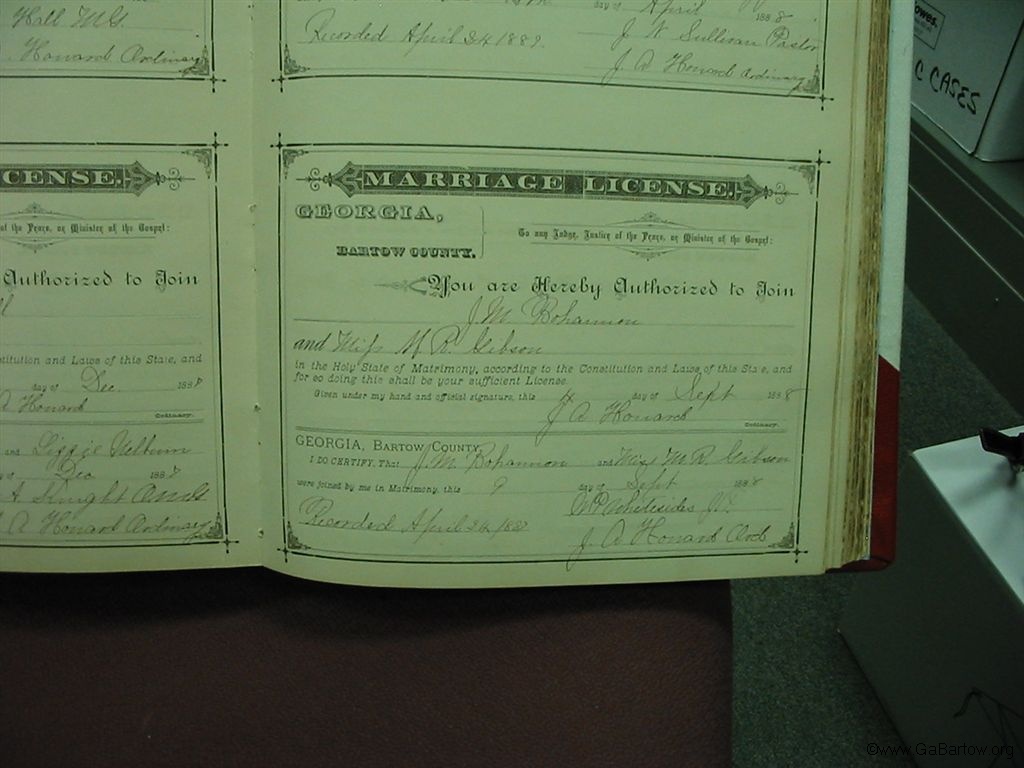 Hall M.G.
Howard Ordinary
day of April 1888
Recorded April 24 1889.
J. W. Sullivan Pastor
J A Howard Ordinary
CENSE.
of the Peace, or Minister of the Gospel:
Authorized to Join
stitution and Laws of this State, and
day of Dec 188
A Howard
Ordinary.
and Lizzie
of Dec 188
A Knight
J A Howard Ordinary
MARRIAGE LICENSE.
GEORGIA,
BARTOW COUNTY.
To any Judge, Justice of the Peace, or Minister of the Gospel:
You are Hereby Authorized to Join
J. M. Bohannon
and Miss M. R. Gibson
in the Holy State of Matrimony, according to the Constitution and Laws of this State, and
for so doing this shall be your sufficient License.
Given under my hand and official signature, this day of Sept 1888
J A Howard
Ordinary.
GEORGIA, Bartow County
I DO CERTIFY, That J. M. Bohannon and Miss M. R. Gibson
were joined by me in Matrimony, this 9 day of Sept 1888
Whitesides J.P.
Recorded April 24, 1889
J. A Howard Ord
C CASES
©www.GaBartow.org